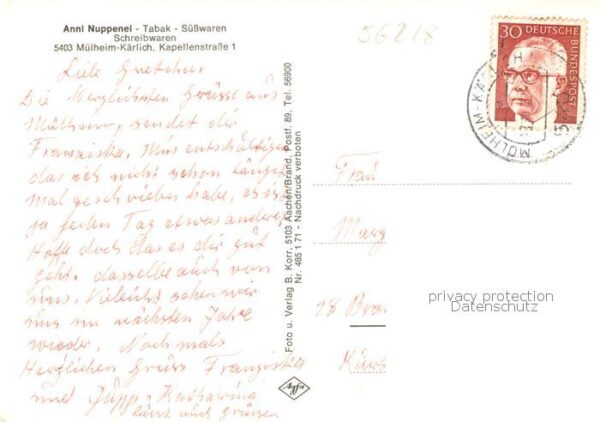 Anni Nuppenel - Tabak - Süßwaren
Schreibwaren
5403 Mülheim-Kärlich, Kapellenstraße 1
56218
30 DEUTSCHE BUNDESPOST
MÜLHEIM-K
Liebe Gretchen
Die Herzlichsten Grüsse aus
Mülheim, sendet dir
Franziska. Mus entschuldigen
das ich nicht schon länger
mal geschrieben habe, es is
ja jeden Tag etwas anderes
Hoffe doch das es dir gut
geht. dasselbe auch von
uns. Vieleicht sehen wir
uns im nächsten Jahre
wieder. Noch mals
Herzlichen Grüss Franziska
und Jupp - Katharina
lässt auch Grüssen
Foto u. Verlag B. Korr, 5103 Aachen/Brand, Postf. 89, Tel. 56900
Nr. 485 1 71 - Nachdruck verboten
Agfa
Frau
18
privacy protection
Datenschutz